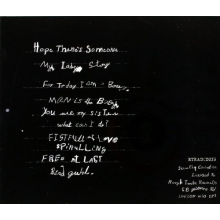 Hope There's Someone
My Lady Story
For Today I am a Boy
MAN is the Baby
You are my sister
what can I do?
FISTFULL of LOVE
SPIRALLING
FREE AT LAST
Bird guhl.
RTRADCD223
Secretly Canadian
Licensed to
Rough Trade Records
66 golborne rd
london w10 5PS